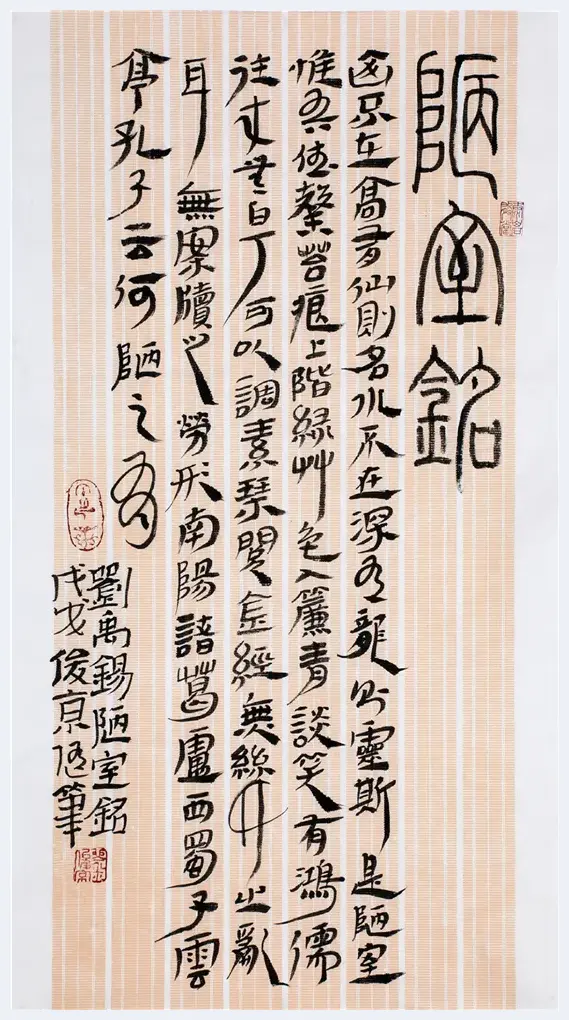 陋室銘
山不在高有仙則名水不在深有龍則靈斯是陋室
惟吾德馨苔痕上階緑艸色入簾青談笑有鴻儒
往来無白丁可以調素琴閱金經無絲竹之亂
耳無案牘之勞形南陽諸葛廬西蜀子雲
亭孔子云何陋之有
劉禹錫陋室銘
戊戌俊京筆